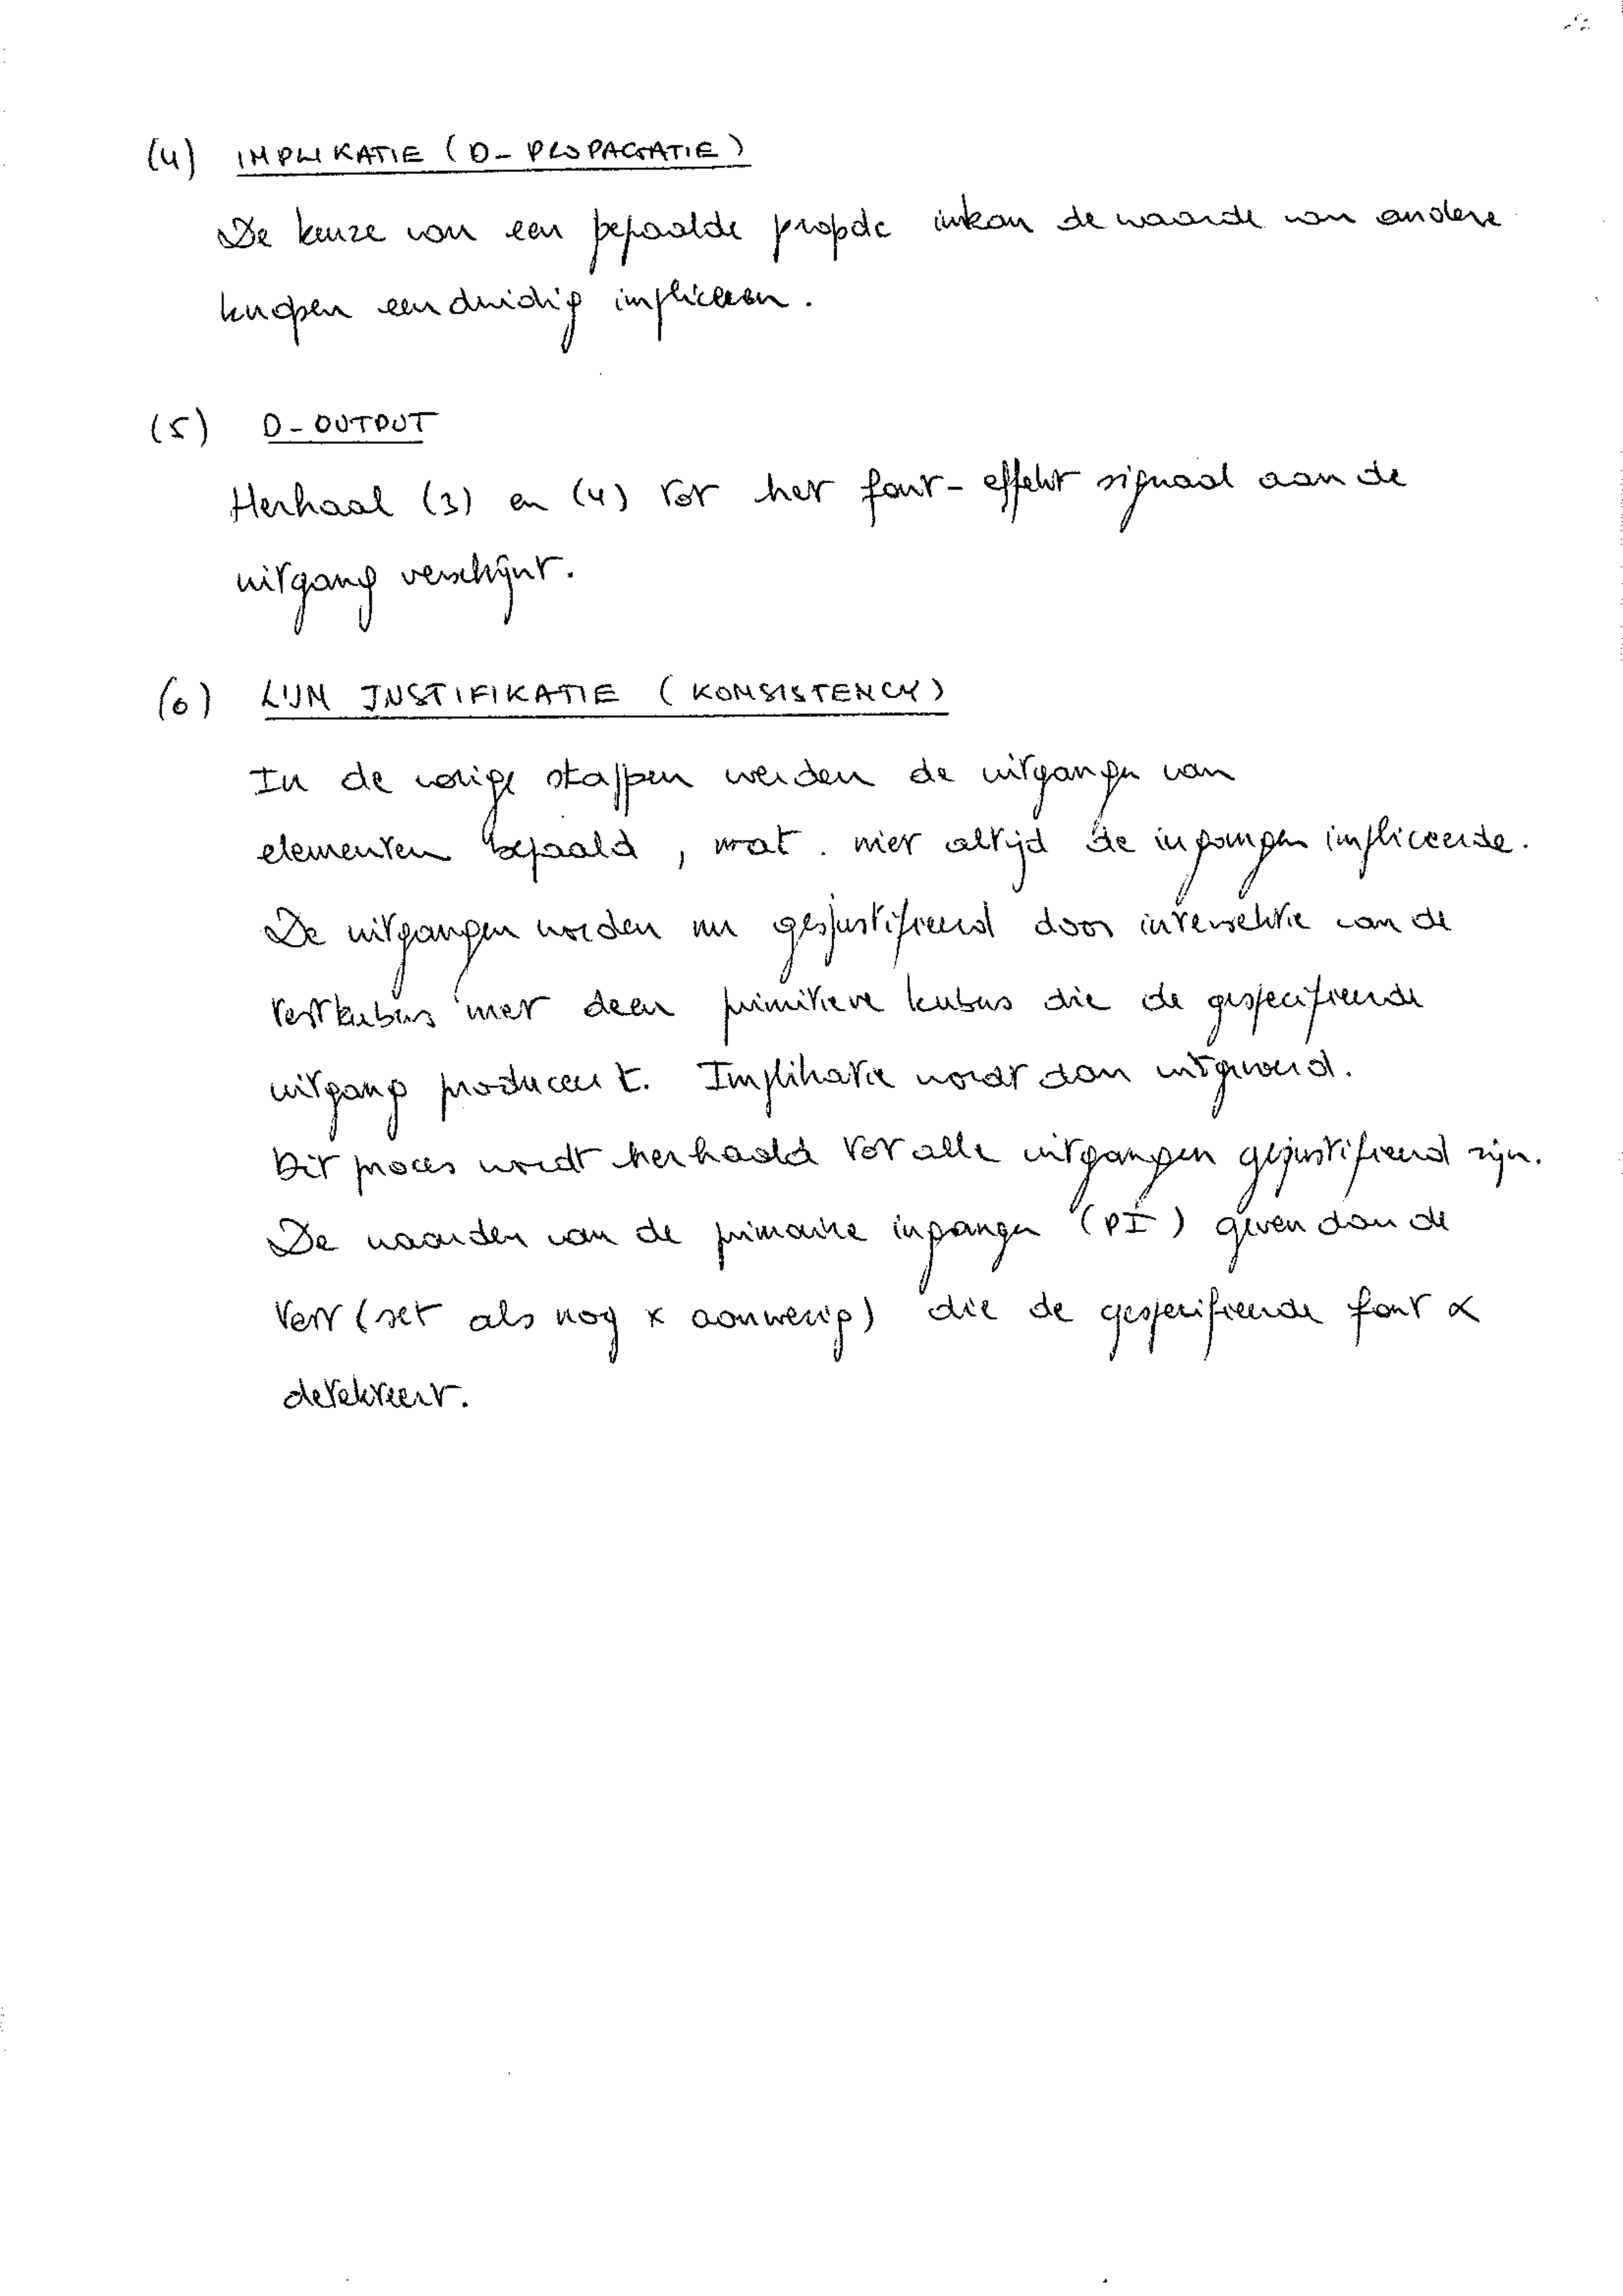 (4) IMPLIKATIE (D-PROPAGATIE)
De keuze van een bepaalde propdc kan de waarde van andere
knopen eenduidig impliceren.
(5) D-OUTPUT
Herhaal (3) en (4) tot het fout-effekt signaal aan de
uitgang verschijnt.
(6) LIJN JUSTIFIKATIE (KONSISTENCY)
In de vorige stappen werden de uitgangen van
elementen bepaald, wat niet altijd de ingangen impliceerde.
De uitgangen worden nu gesjustifieerd door intersektie van de
testkubus met deen primitieve kubus die de gespecifieerde
uitgang produceert. Implikatie wordt dan uitgevoerd.
Dit proces wordt herhaald tot alle uitgangen gejustifieerd zijn.
De waarden van de primaire ingangen (PI) geven dan de
test (set als nog x aanwezig) die de gespecifieerde fout α
detekteert.